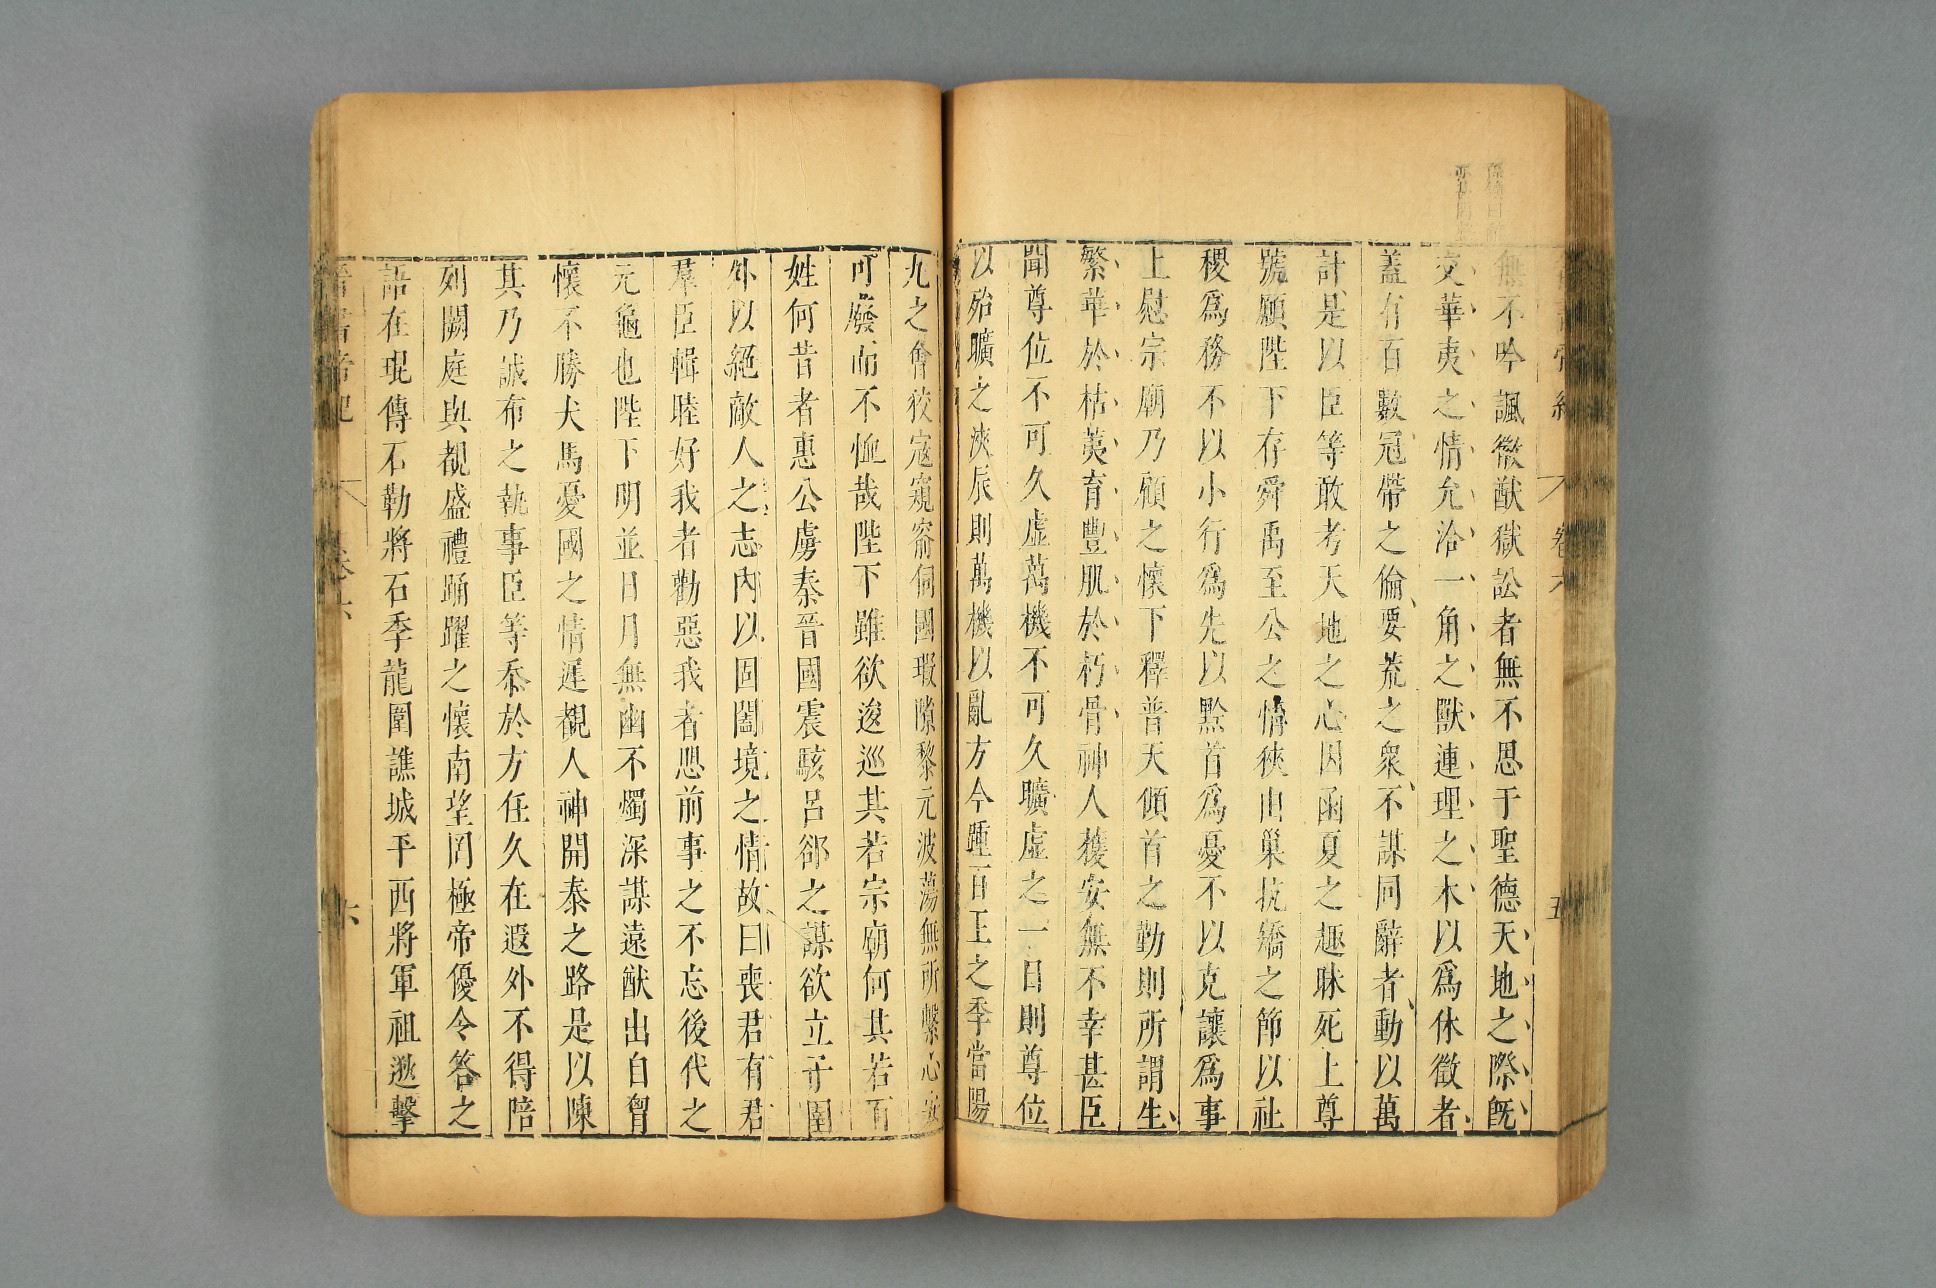 無不吟諷徽猷獄訟者無不思于聖德天地之際既
交華夷之情允洽一角之獸連理之木以爲休徵者
蓋有百數冠帶之倫要荒之衆不謀同辭者動以萬
計是以臣等敢考天地之心因函夏之趣昧死上尊
號願陛下存舜禹至公之情狹由巢抗矯之節以社
稷爲務不以小行爲先以黔首爲憂不以克讓爲事
上慰宗廟乃顧之懷下釋普天傾首之勤則所謂生
繁華於枯荑育豐肌於朽骨神人獲安無不幸甚臣
聞尊位不可久虛萬機不可久曠虛之一日則尊位
以殆曠之浹辰則萬機以亂方今踵百王之季當陽
九之會狡寇窺窬伺國瑕隙黎元波蕩無所繫心安
可廢而不恤哉陛下雖欲逡巡其若宗廟何其若百
姓何昔者惠公虜秦晉國震駭呂郤之謀欲立子圉
外以絕敵人之志內以固闔境之情故曰喪君有君
羣臣輯睦好我者勸惡我者思前事之不忘後代之
元龜也陛下明並日月無幽不燭深謀遠猷出自胷
懷不勝犬馬憂國之情遲覩人神開泰之路是以陳
其乃誠布之執事臣等忝於方任久在遐外不得陪
列闕庭與覩盛禮踊躍之懷南望罔極帝優令答之
語在琨傳石勒將石季龍圍譙城平西將軍祖逖擊
卷六
五
六